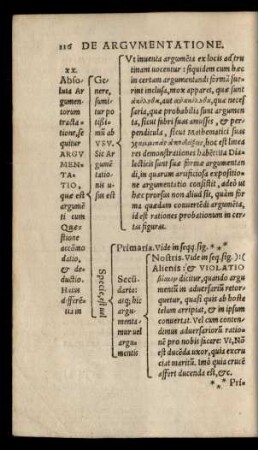 116 DE ARGVMENTATIONE.
XX.
Absoluta Argumentorum
tractatione, sequitur
ARGVMENTATIO,
quæ est argumẽti
cum Quæstione
accõmodatio,
& deductio.
Huius differẽtia
in
Genere,
sumitur potissimũ
ab
VSV.
Sic Argumẽtationis
usus est
Vt inuenta argumẽta ex locis ad trutinam
uocentur: siquidem cum hæc
in certam argumentandi formã fuerint
inclusa, mox apparet, quæ sunt
quæ necessaria,
quæ probabilia sunt argumenta,
sicut fabri suas amusses, & perpendicula,
sicut Mathematici suas
hoc est lineares
demonstrationes habẽt: ita Dialecticis
sunt suæ formæ argumentandi,
in quarum artificiosa expositione
argumentatio consistit, adeò ut
hæc prorsus non aliud sit, quàm forma
quædam conuertẽdi argumẽta,
id est rationes probationum in certas
figuras.
Specie, estq́ue
Primaria. Vide in seqq. sig. * * *
Secũdaria:
atq; hic
argumentamur
uel
argumentis
Nostris. Vide in seq. sig. )(
Alienis: & VIOLATIO
dicitur, quando argumentũ
in aduersariũ retorquetur,
quasi quit ab hoste
telum arripiat, & in ipsum
conuertat. Vel cum contendimus
aduersariorũ rationẽ
pro nobis facere: Vt, Nõ
est ducẽda uxor, quia excruciat
maritũ. Imò quia crucẽ
affert ducenda est, &c.
* * * Pri-